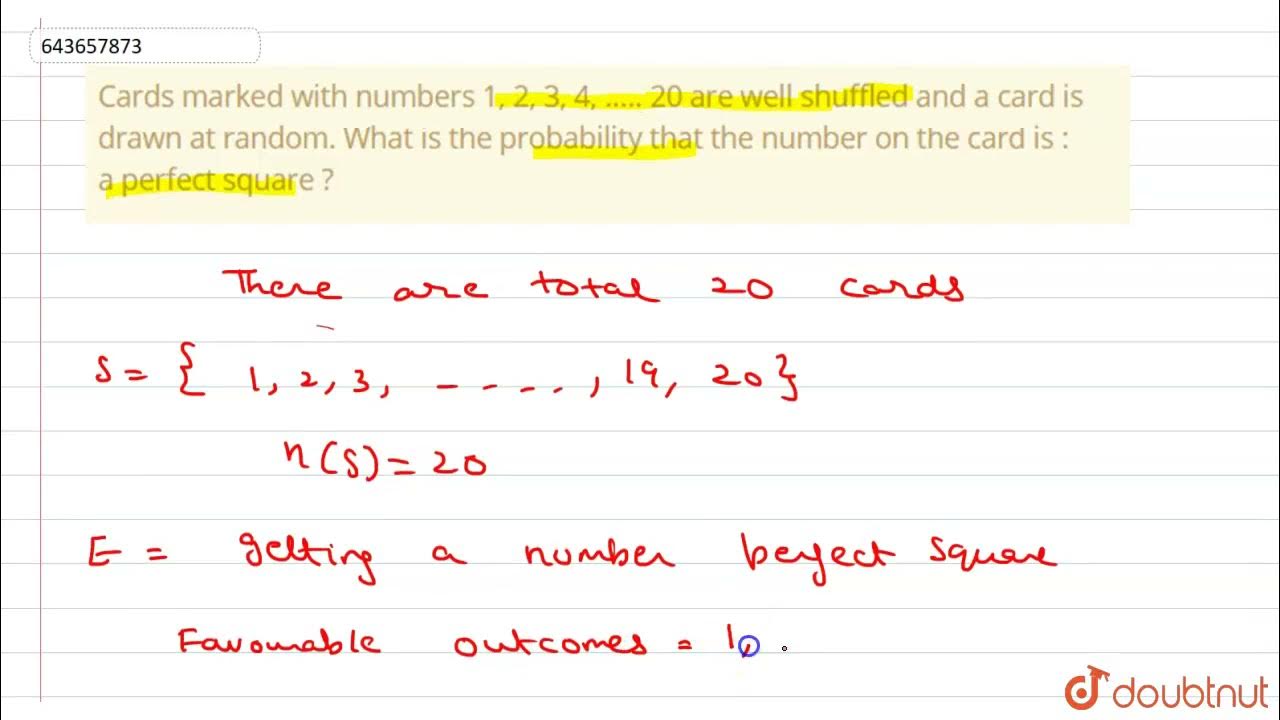 643657873
Cards marked with numbers 1, 2, 3, 4, ..... 20 are well shuffled and a card is
drawn at random. What is the probability that the number on the card is :
a perfect square ?
There are total 20 cards
S = { 1, 2, 3, - - - - .., 19, 20}
n(S) = 20
E = getting a number perfect square
Favourable outcomes = 1,
doubtnut